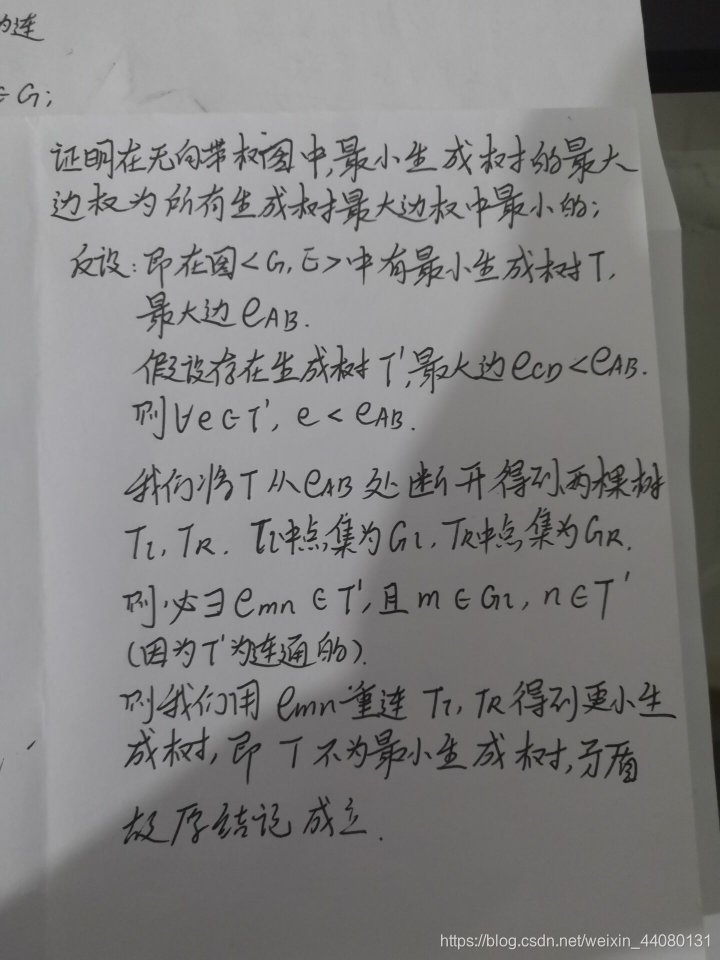 的连
∈ G;
证明在无向带权图中,最小生成树的最大
边权为所有生成树最大边权中最小的;
反设:即在图<G,E>中有最小生成树T,
最大边 eAB.
假设存在生成树T',最大边eCD<eAB.
则∀e∈T', e<eAB.
我们将T从eAB处断开得到两棵树
Tl, TR. Tl中点集为Gl, TR中点集为GR.
则必∃ emn∈T',且m∈Gl, n∈T'
(因为T'为连通的).
则我们用 emn重连 Tl, TR得到更小生
成树,即 T不为最小生成树,矛盾
故原结论成立.
https://blog.csdn.net/weixin_44080131